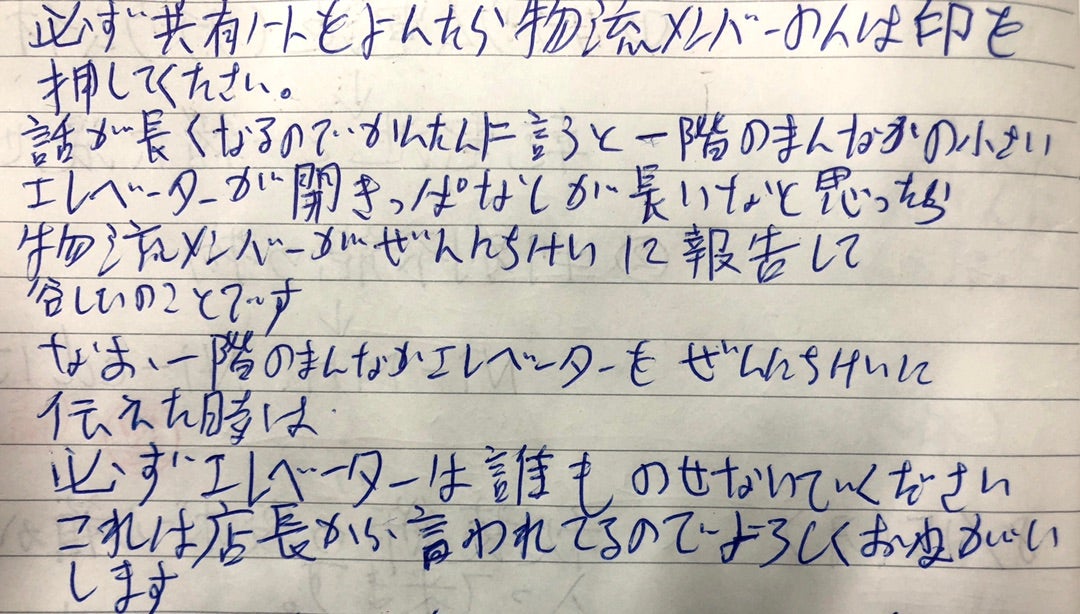 必ず共有ノートをよんたら物流メンバーのんは印を
押してください。
話が長くなるのでかんたんに言うと一階のまんなかの小さい
エレベーターが開きっぱなしが長いなと思ったら
物流メンバーがぜんんちけいに報告して
欲しいのことです
なお、一階のまんなかエレベーターを ぜんんちけいに
伝えた時は
必ずエレベーターは誰ものせないでください
これは店長から言われてるのでよろしくおねがい
します